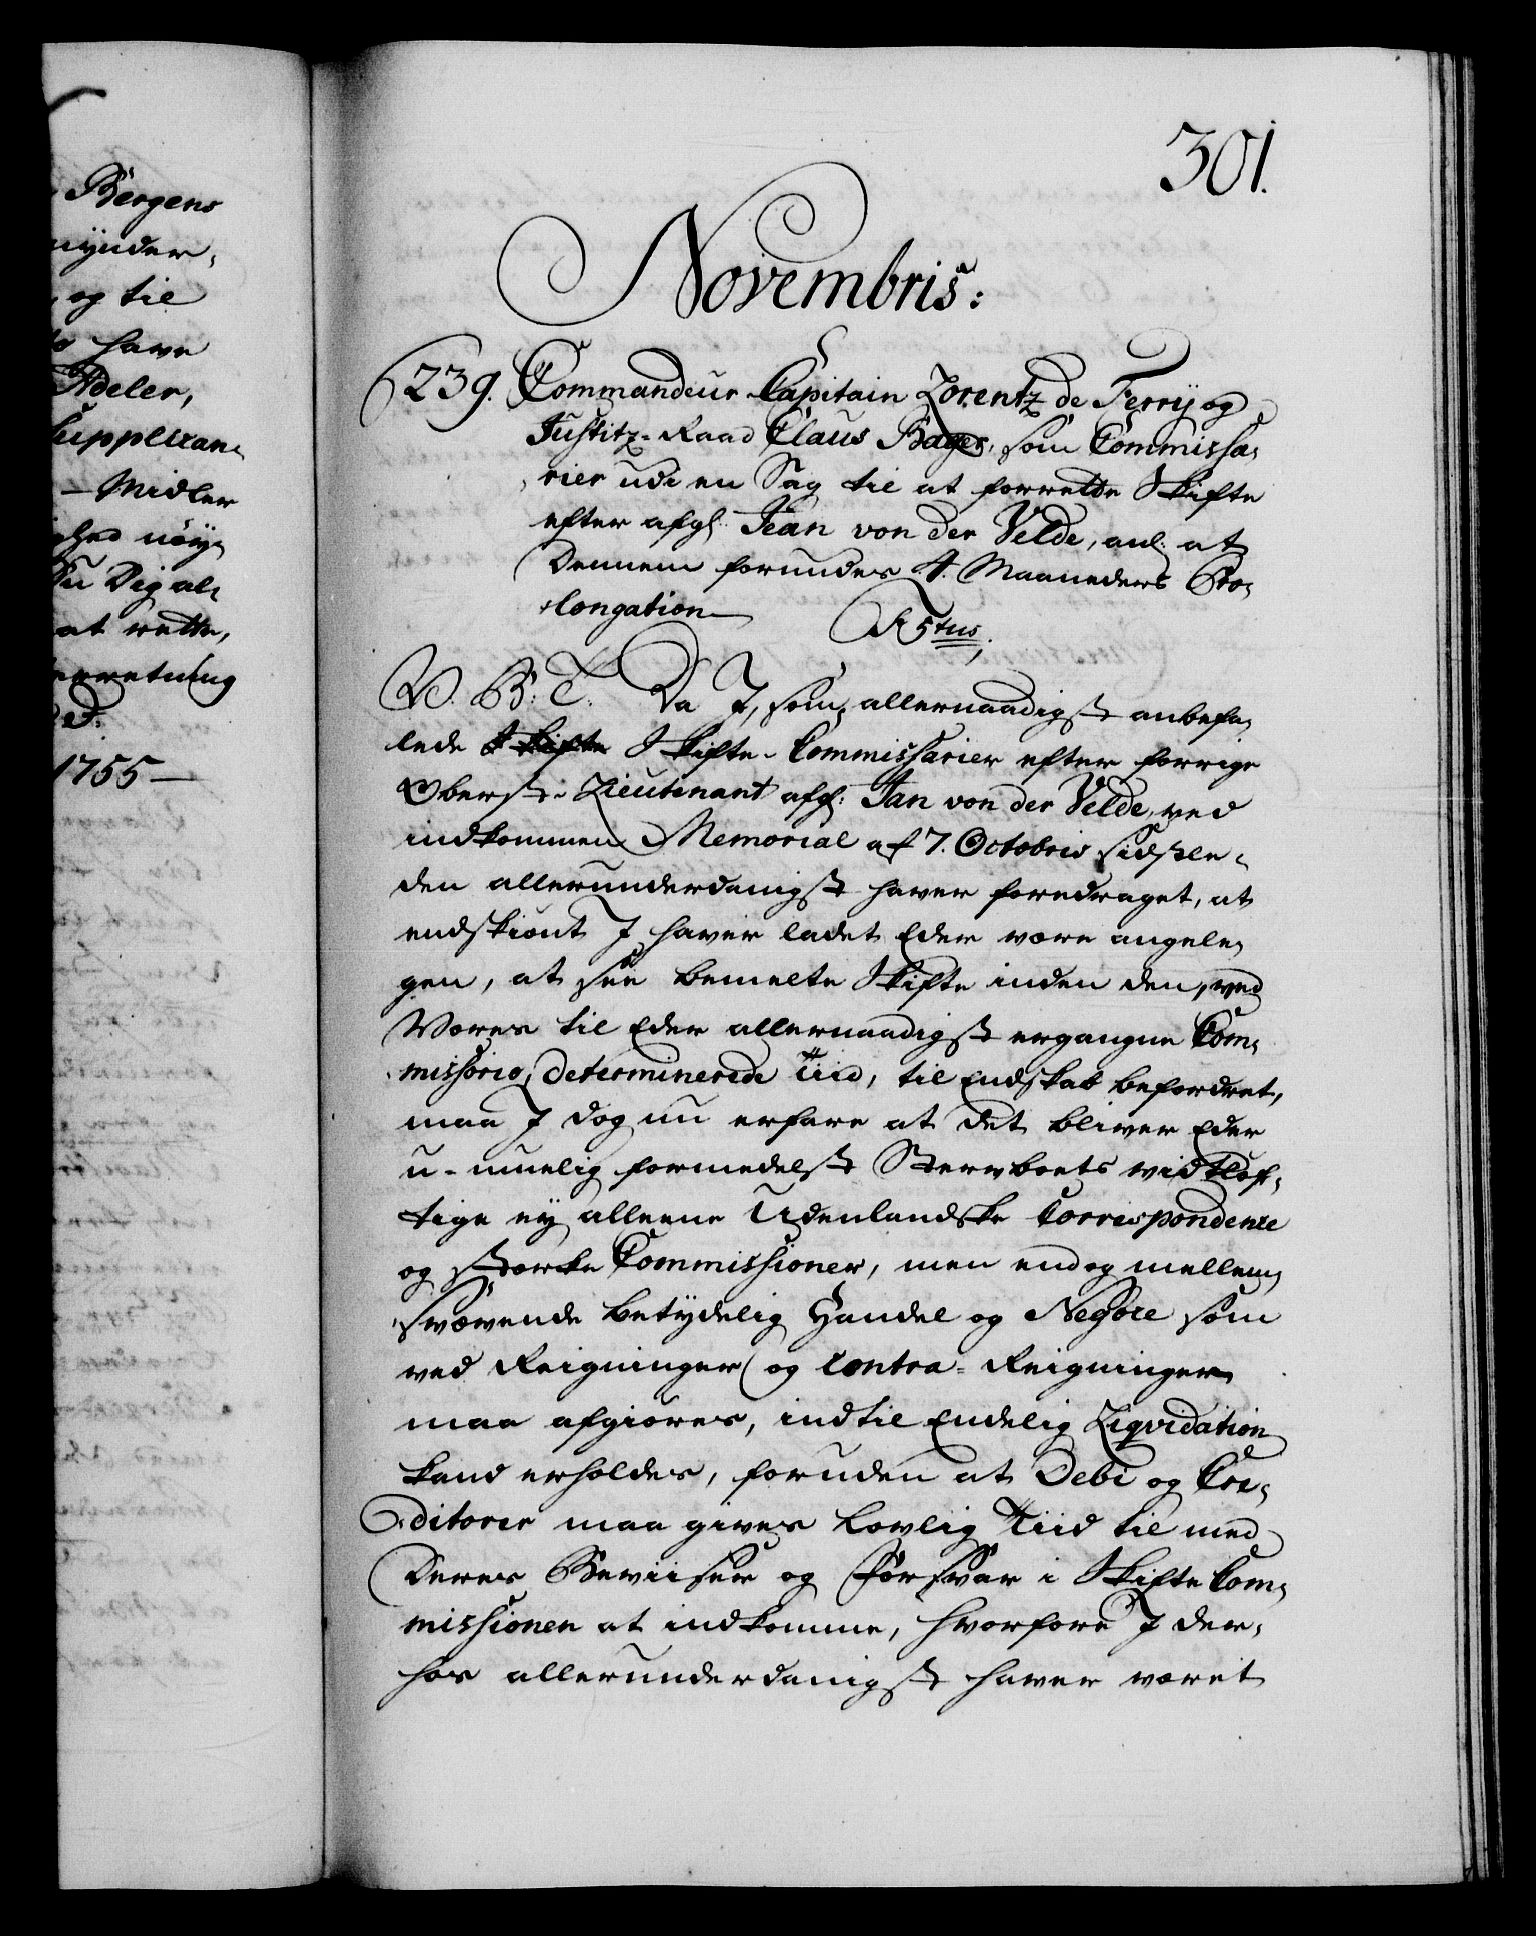 Bergens
mynder,
og til
have
Adeler,
Supplican-
- Midler
nøy-
Du Dig al-
at rette,
erretning
D:
1755 -
301.
Novembris:
239. Commandeur-Capitain Lorentz de Ferry og
Justitz-Raad Claus Bager, som Commissa-
rier udi en Sag til at forrette Skifte
efter afg. Jean von der Velde, anl. at
Dennem forundes 4. Maaneders Pro-
longation
R 5tus.
V. B: T. Da I, som allernaadigst anbefa-
lede Skifte Skifte-Commissarier efter forrige
Oberst-Lieutenant afg: Jan von der Velde, ved
indkommen Memorial af 7. Octobris sidstle-
den allerunderdanigst haver foredraget, at
endskiønt I haver ladet Eder være angele-
gen, at see bemelte Skifte inden den, ved
Vores til Eder allernaadigst ergangne Com-
missorio, determinerede Tiid, til Endskab befordret,
maa I dog nu erfare at det bliver Eder
u-muelig formedelst Sterboets vidtløf-
tige ey alleene Udenlandske Correspondence
og stærke Commissioner, men endog mellem
svævende betydelig Handel og Negoce som
ved Reigninger og Contra-Reigninger
maa afgiøres, indtil Endelig Liqvidation
kand erholdes, foruden at Debi og Cre-
ditorer maa gives Lovlig Tiid til med
Deres Beviiser og Forsvar i Skifte Com-
missionen at indkomme, hvorfore I der-
hos allerunderdanigst haver været